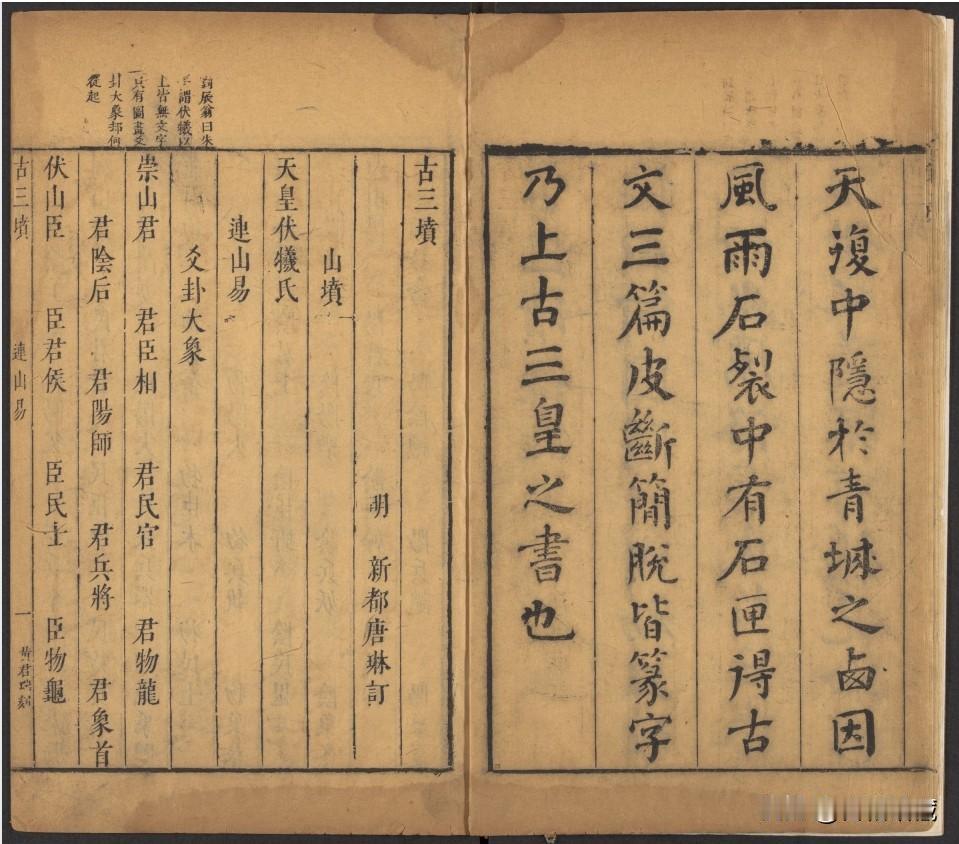 天復中隱於青城之卥因
風雨石裂中有石匣得古
文三篇皮斷簡脫皆篆字
乃上古三皇之書也
劉辰翁曰朱
子謂伏犧以
上皆無文字
只有圖畫爻
卦大象却何
從起
古三墳
明 新都唐琳訂
山墳
天皇伏犧氏
連山易
爻卦大象
崇山君 君臣相 君民官 君物龍
君陰后 君陽師 君兵將 君象首
伏山臣 臣君侯 臣民士 臣物龜
古三墳 連山易 一